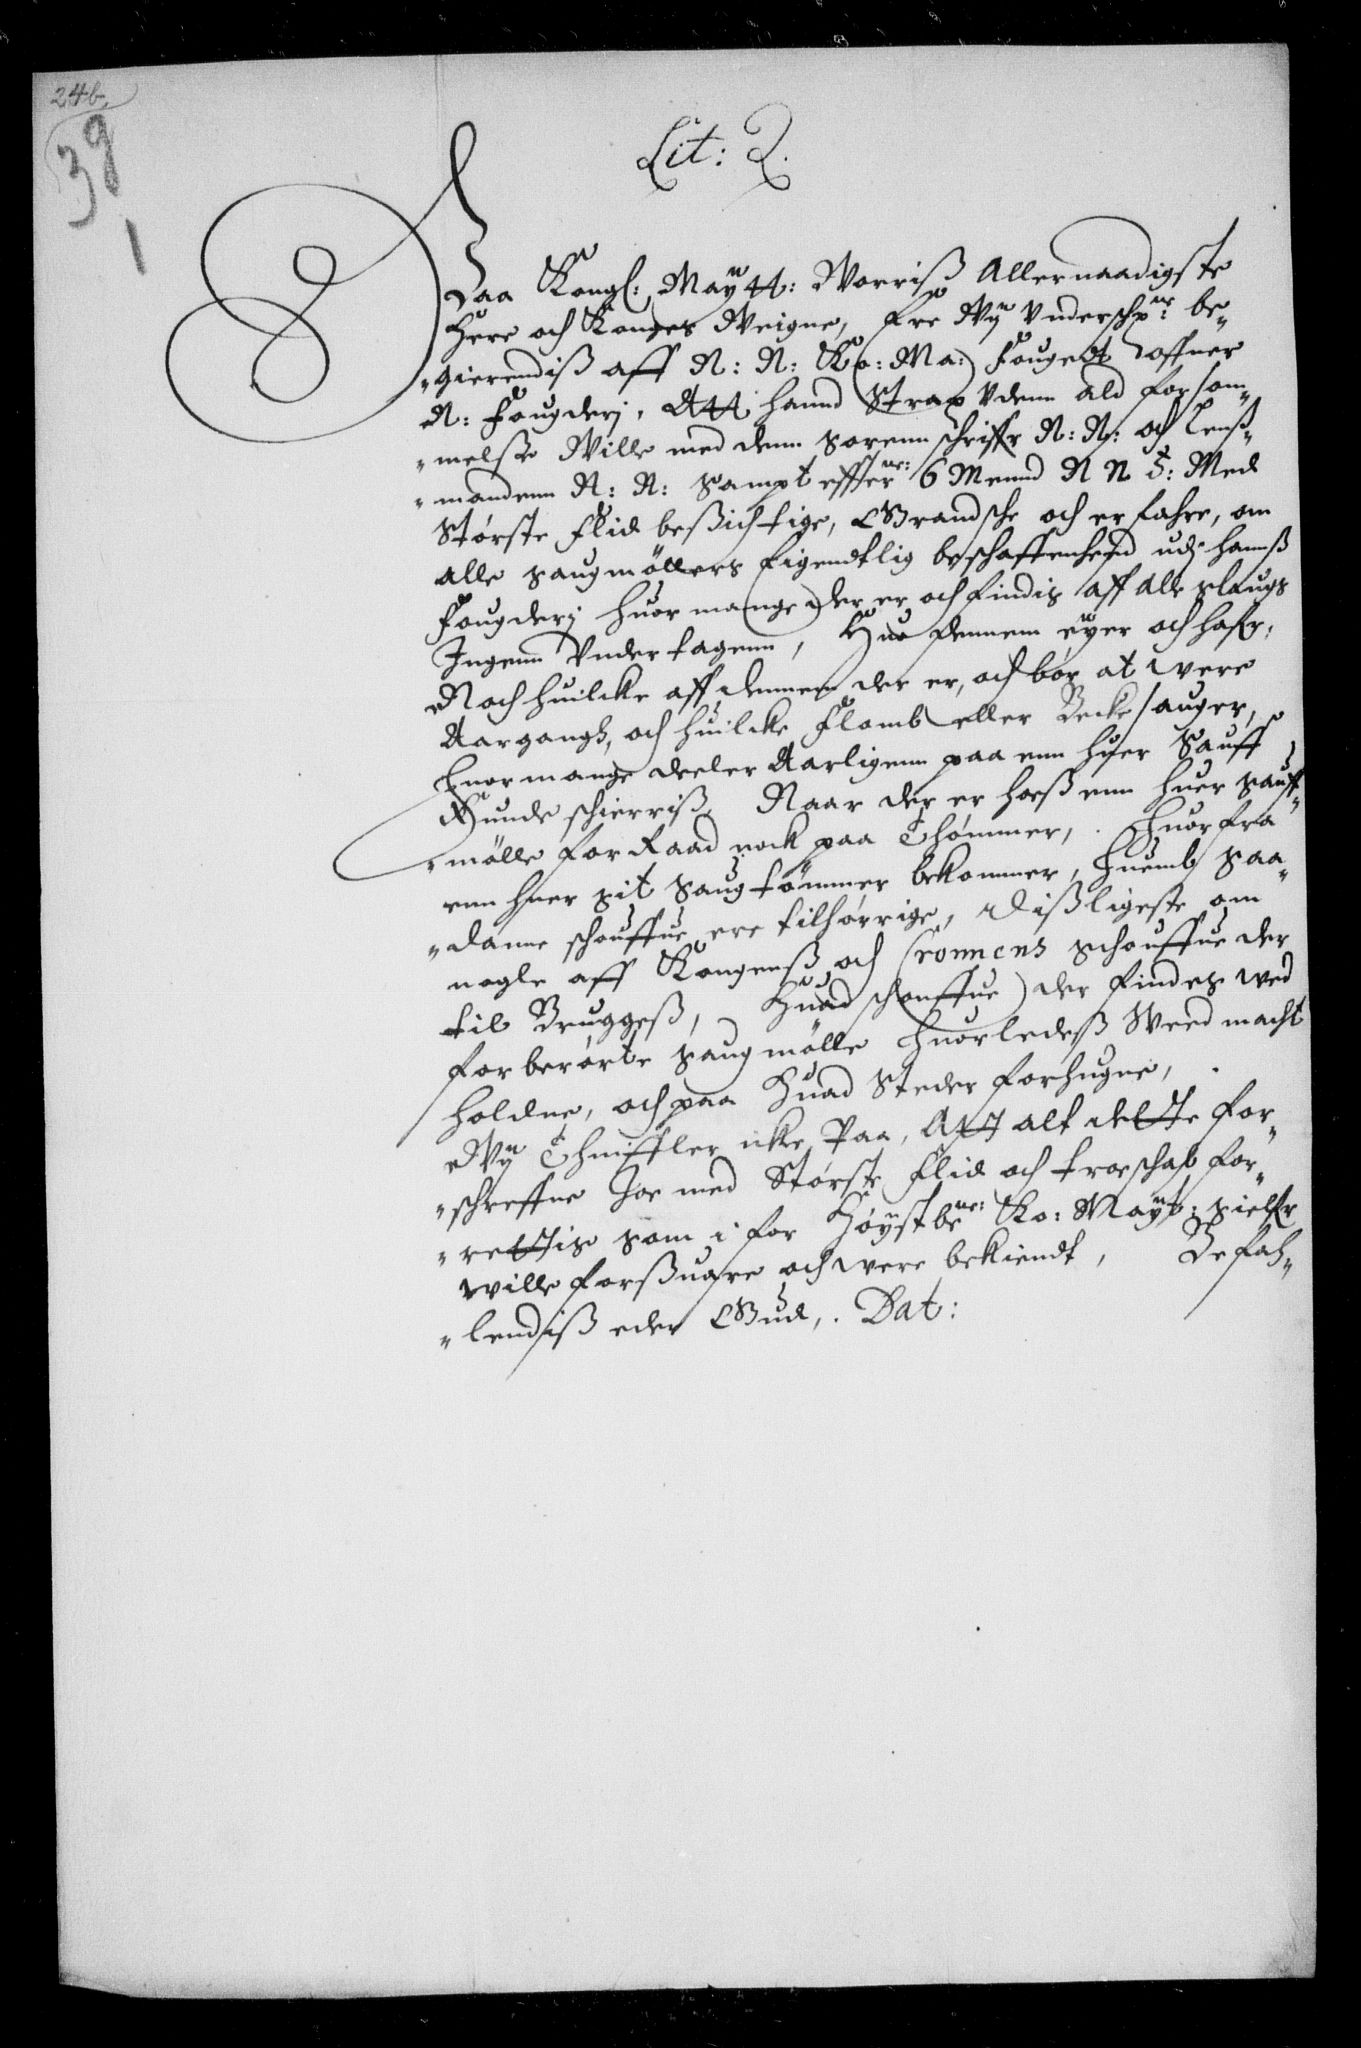 24b.
39
1
Lit: Q.
Paa Kongl: Maÿtt: Worriß Allernaadigste
Herre och Konges Weigne, Ere Wÿ Vnderschr: be„
„gierendiß aff N: N: Ko: Ma: Fougedt offuer
N: Fougderj, Att hannd Strax Vdenn ald forsøm„
„melße Wille med denn sorenn schriffr N: N: och Lenß„
„mandenn N: N: sampt effter: 6 Mennd N N S: Med
Største Flid beßichtige, Grandsche och erfahre, om
alle saugmöllers Eigendtlig beschaffenhejd udj hanß
Fougderj huor mange der er och findis aff Alle slaugs
Ingenn Vndertagenn, Huo dennem eÿer och hafr,
Noch huilcke aff dennem der er, och bør at were
Aargangs, och huilcke Flomb eller Becke sauger,
Huor mange deeler Aarligenn paa enn huer Sauff
Kunde schierriß, Naar der er hoeß enn huer sauff„
„mölle forRaad nock paa Thømmer, Huor fra
enn huer sit saugtömmer bekommer, Huemb saa„
„danne schouffue ere tilhørrige, Dißligeste om
nogle aff Kongenß och Cronnens schouffue der
til Bruggeß, Huad schouffue der findes wed
forberørte saugmölle huorledeß Weed macht
holdne, och paa Huad Steder forhugne,
Wÿ Thuiffler icke Paa, Att alt dette for„
„schreffne Joe med Største Flid och troeschab for„
„rettis som i for Høÿstbe: Ko: Maÿt: sielfr
wille forßuare och were bekiendt, Befah„
„lendiß eder Gud,. Dat: